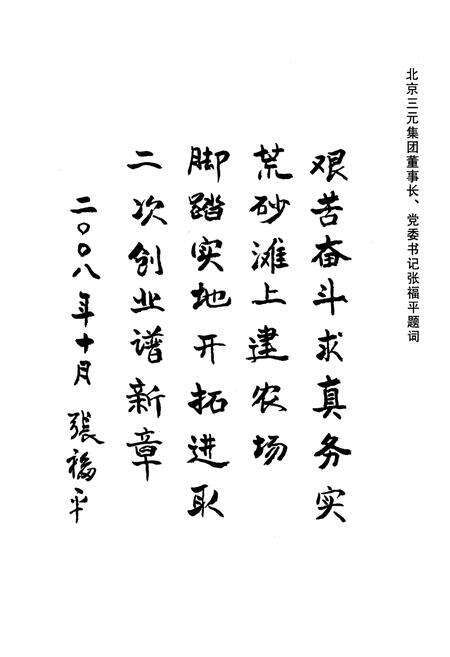 北京三元集团董事长、党委书记张福平题词
艰苦奋斗求真务实
荒砂滩上建农场
脚踏实地开拓进取
二次创业谱新章
二〇〇八年十月 張福平